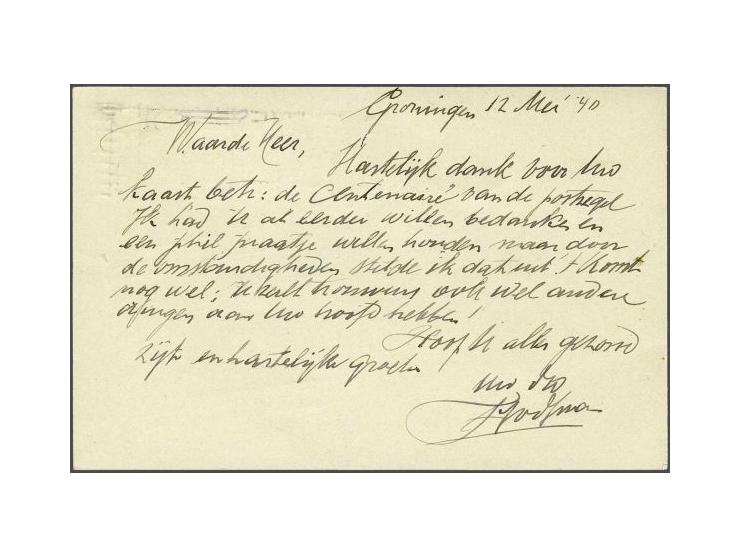 Groningen 12 Mei '40
Waarde Heer,
Hartelijk dank voor Uw
kaart betr: de Centenaire van de postzegel
Ik had U al eerder willen bedanken en
een phil praatje willen houden maar door
de omstandigheden stelde ik dat uit. 't Komt
nog wel; U zult trouwens ook wel andere
dingen aan Uw hoofd hebben!
Hoop U alles gezond
zijt en hartelijke groeten
Uw dw